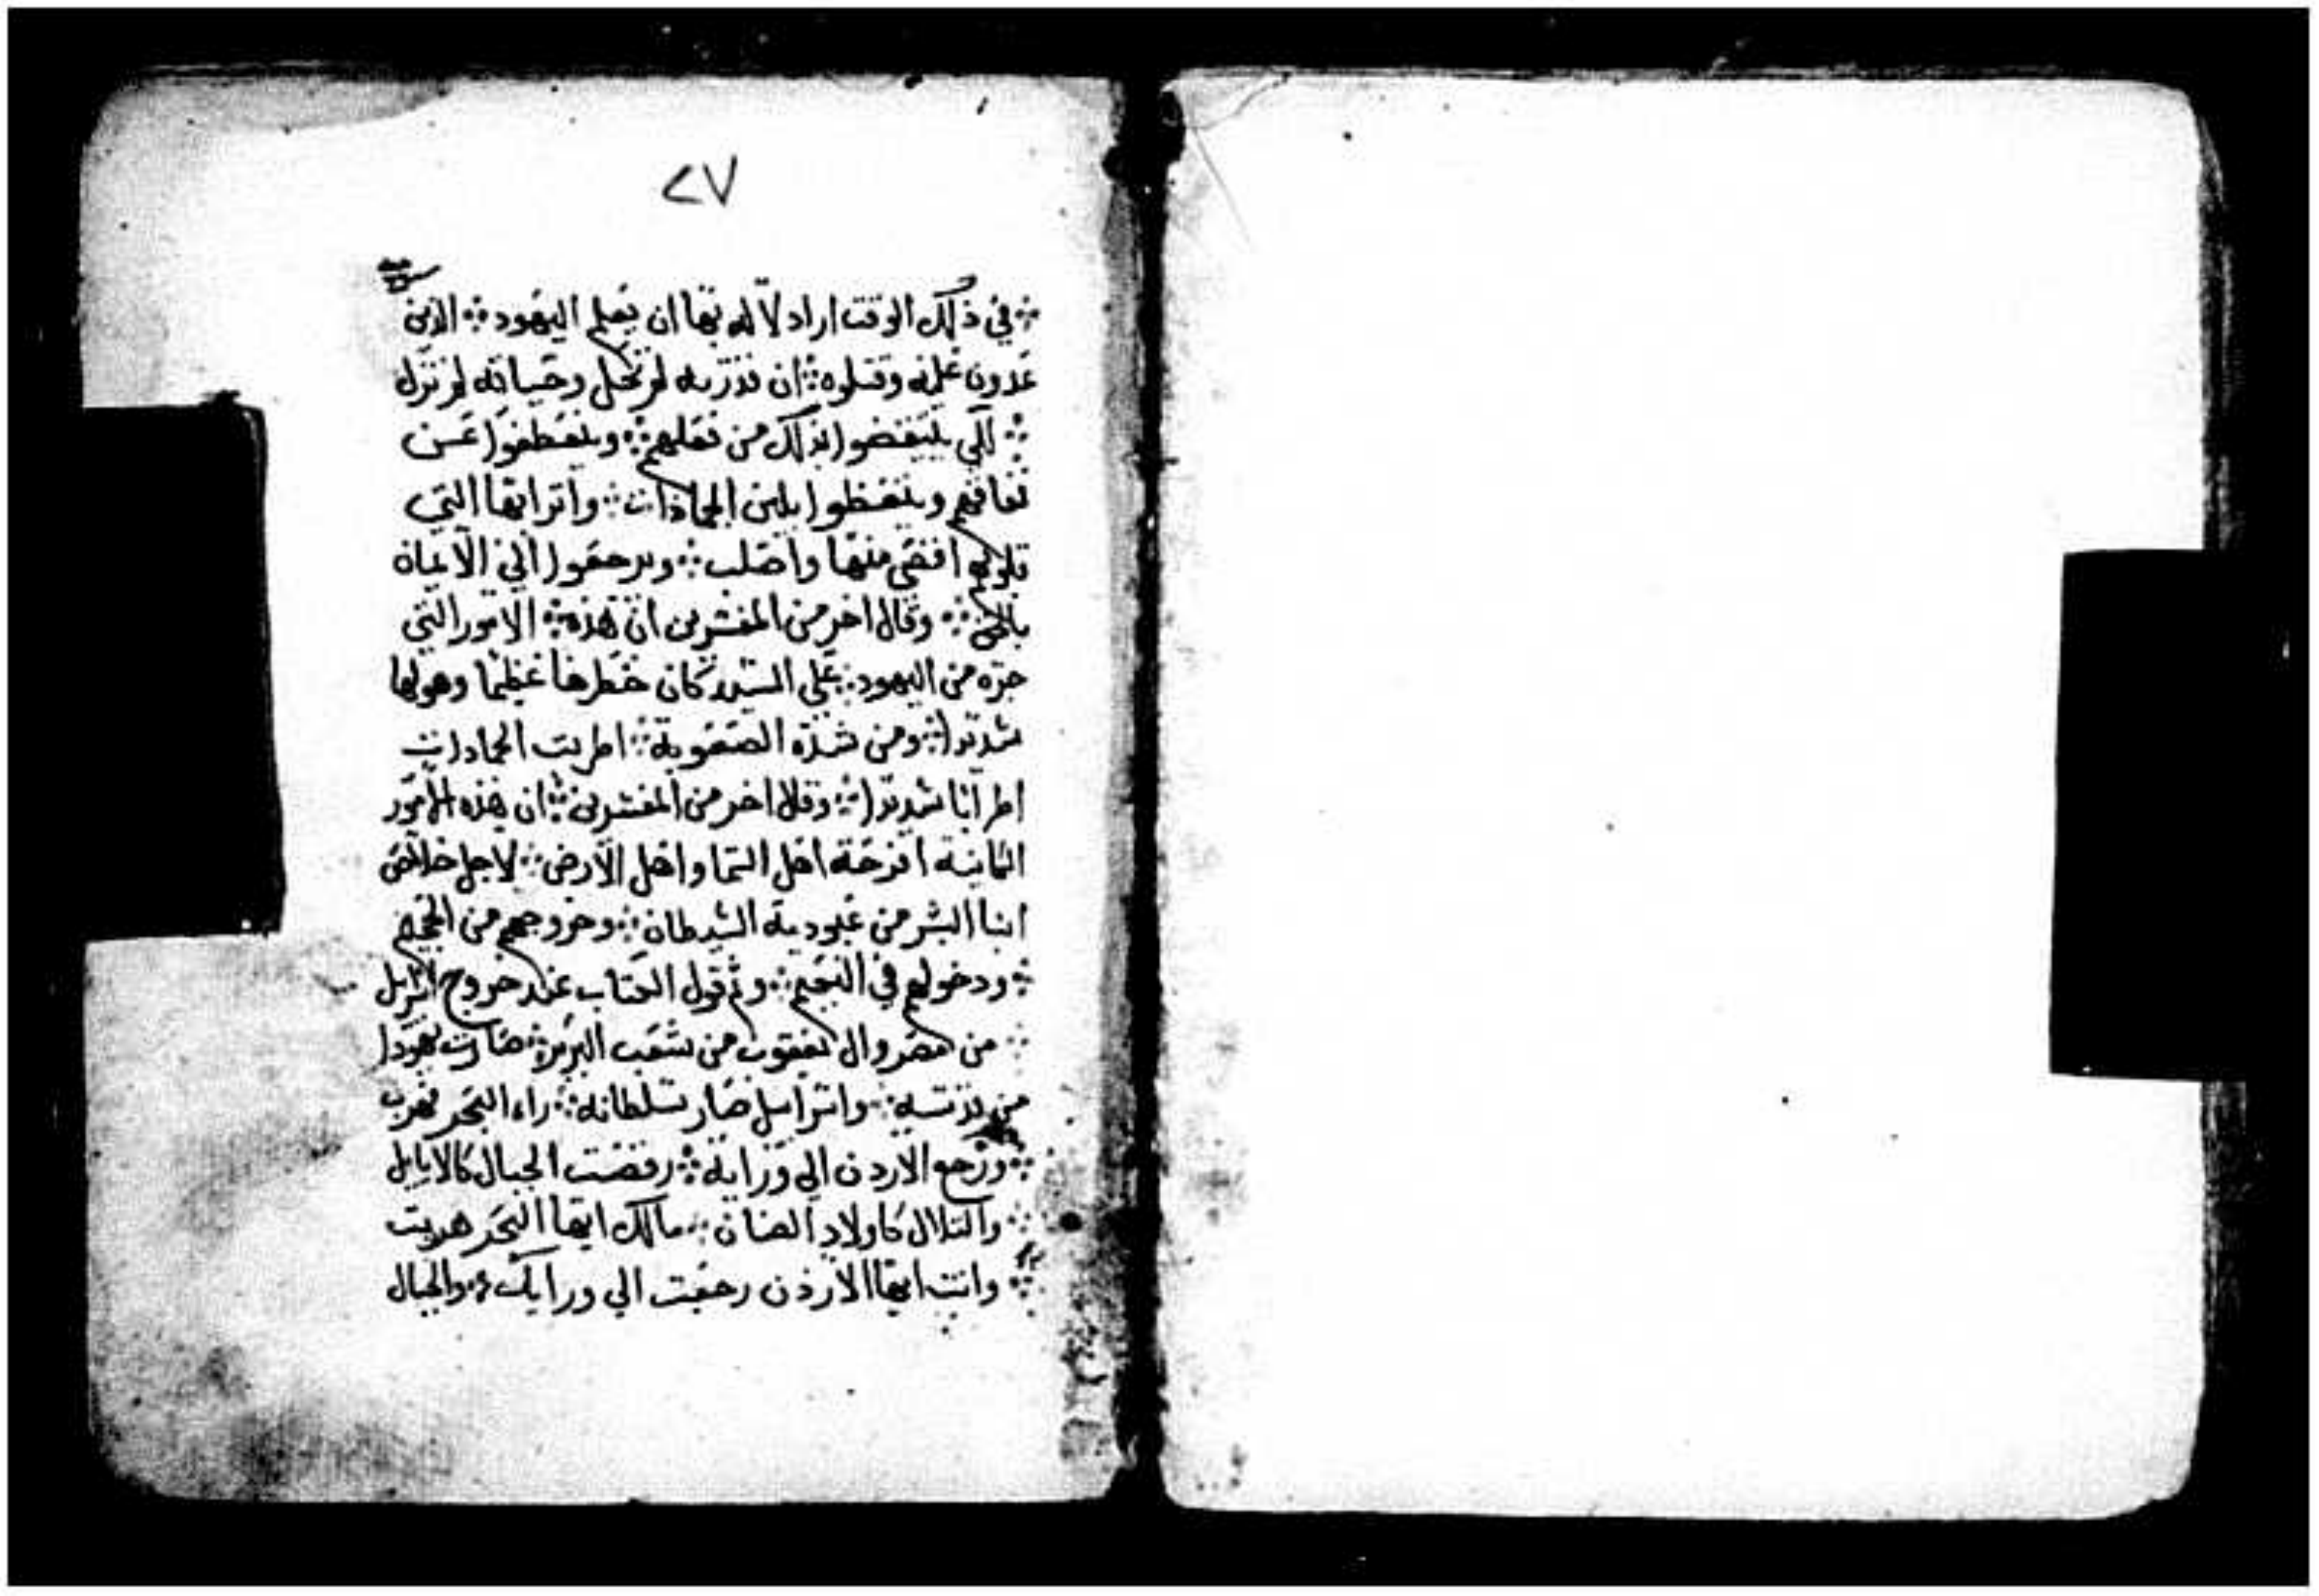 ٢٧
في ذلك الوقت اراد لاله بها ان يعلم اليهود الذين
عدون علمه وقتلوه ان قدرته لم تحل وحياته لم تزل
لكي بذلك من وينعطفوا عن
نفاقهم ويتعظوا بلين الجمادات واترابها التي
قلوبهم اقصي منها واصلب ويرجعوا الي الايمان
بالحق وقال اخر من المفسرين ان هذه الامور التي
جره من اليهود علي السيد كان خطرها عظيما وهولها
شديدا ومن شدة الصعوبة اطربت الجمادات
اطرابا شديدا وقال اخر من المفسرين ان هذه الامور
الثانية افرحة اهل السما واهل الارض لاجل خلاص
ابنا البشر من عبودية الشيطان وخروجهم من الجحيم
ودخولهم في النعيم وثم قول الكتاب عند خروج اسرايل
من مصر وال يعقوب من شعب البربر صارت يهودا
من قدسه واسرايل صار سلطانه راء البحر فهرب
ورجع الاردن الي ورايه رفضت الجبال كالايايل
والتلال كاولاد الضان مالك ايها البحر هربت
وانت ايها الاردن رجعت الي ورايك والجبال